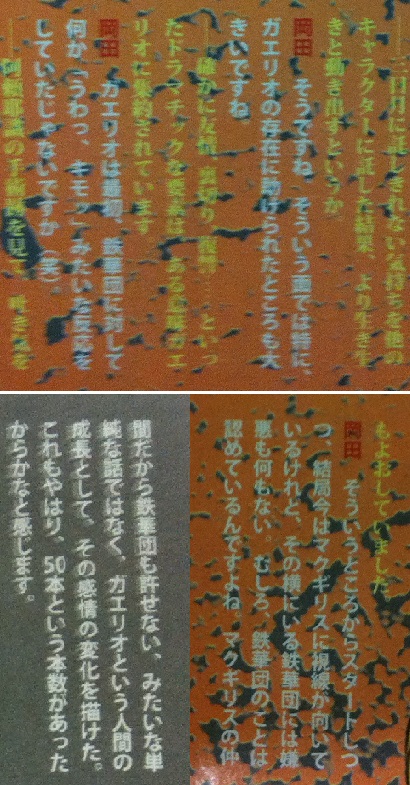 ——三日月に託しきれない気持ちを他の
キャラクターに託した結果、より生き生
きと動き出すというか。
岡田　そうですね。そういう面では特に、
ガエリオの存在に助けられたところも大
きいですね。
——確かに友情、裏切り、復讐……といっ
たドラマチックな要素は、ある意味ガエ
リオに集約されています。
岡田　ガエリオは最初、鉄華団に対して
何か「うわっ、キモッ」みたいな反応を
していたじゃないですか（笑）。
——阿頼耶識の手術痕を見て、吐き気を
もよおしていました。
岡田　そういうところからスタートしつ
つ、結局今はマクギリスに視線が向いて
いるけれど、その横にいる鉄華団には嫌
悪も何もない。むしろ、鉄華団のことは
認めているんですよね。マクギリスの仲
間だから鉄華団も許せない、みたいな単
純な話ではなく、ガエリオという人間の
成長として、その感情の変化を描けた。
これもやはり、50本という本数があった
からかなと感じます。